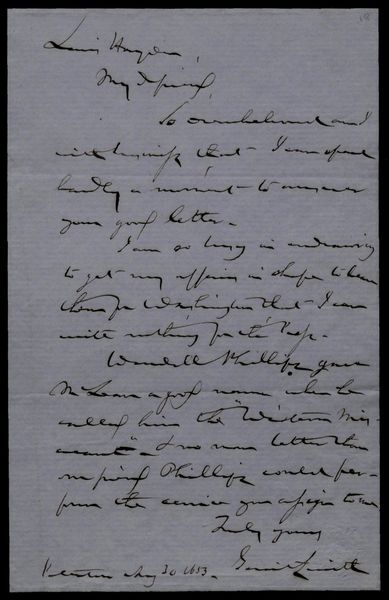 Lewis Hayden,
My friend,
So overwhelmed am I
with business, that I can spare
hardly a moment to answer
your good letter.
I am so busy in endeavoring
to get my affairs in shape to leave
them for Washington that I can
write nothing for the
Wendell Phillips gave
a good name when he
called him the "Western
". No man better than
Phillips could per-
form the service you assign to me
Truly yours
Gerrit Smith
Aug 30 1853.